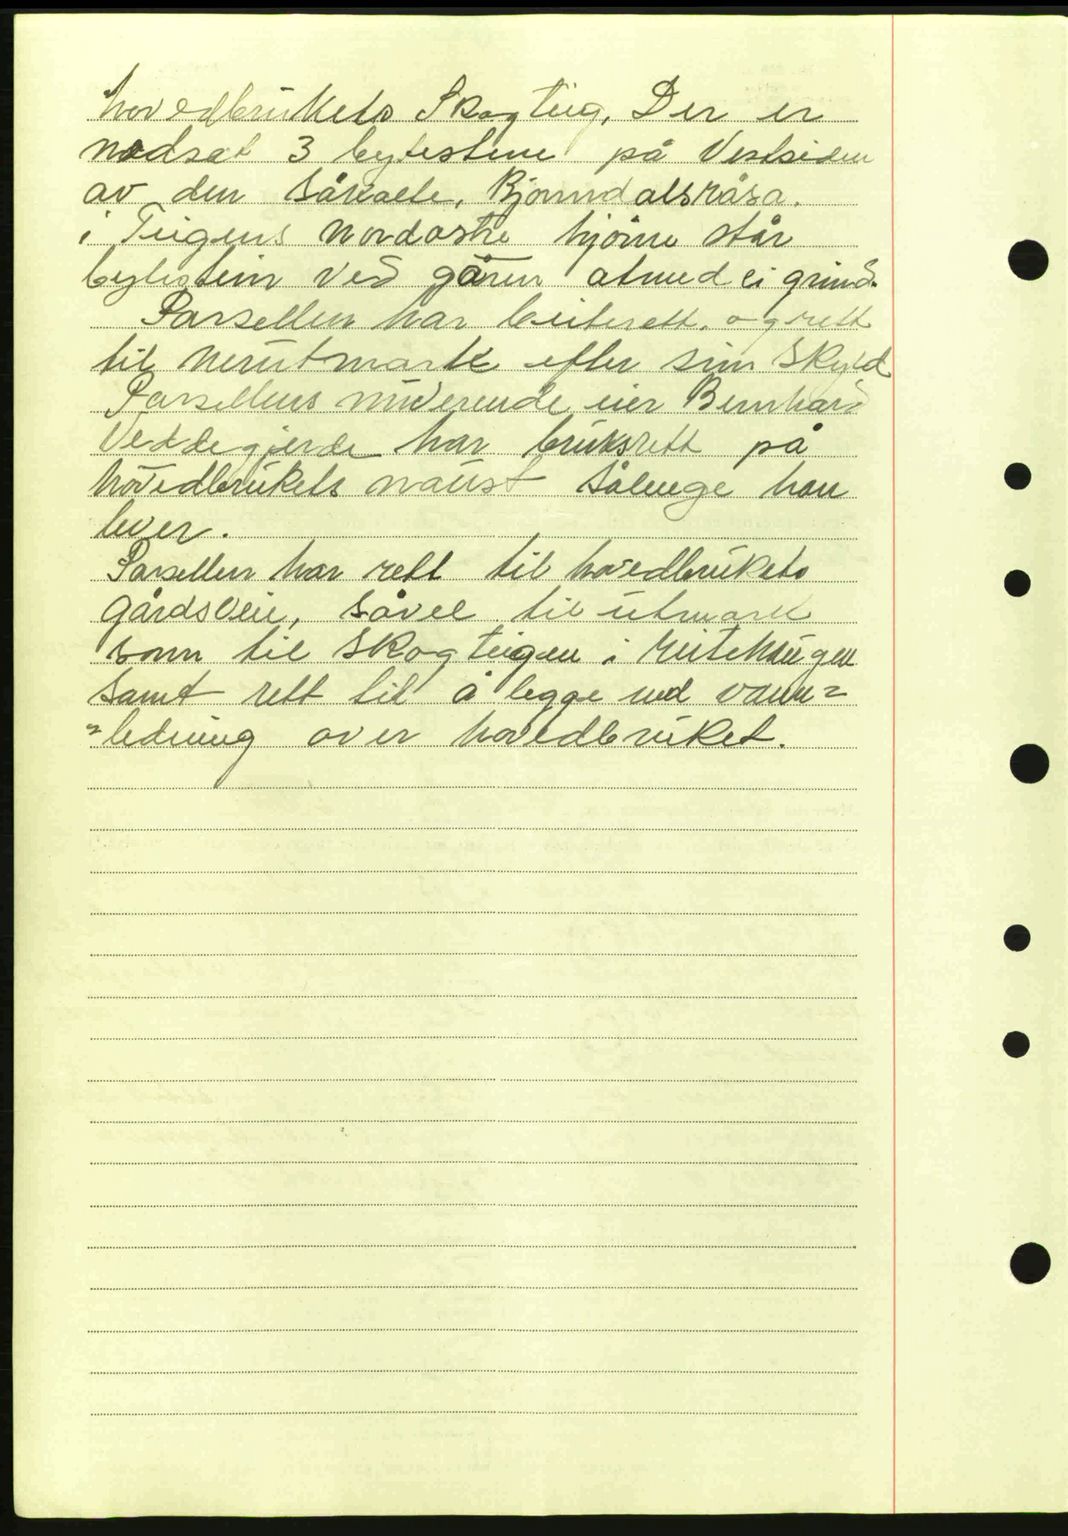 hovedbrukets Skogteig. Der er
nedsat 3 bytesteine på Vestsiden
av den såkalte, Bjørndalsråsa.
i Teigens nordøstre hjørne står
bytestein ved gåren atmed ei grind.
Parsellen har beiterett, og rett
til i utmark efter sin Skyld
Parsellens nuverende eier Bernhard
Veddegjerde har bruksrett på
hovedbrukets naust Sålenge han
lever.
Parsellen har rett til hovedbrukets
gårdsvei, såvel til utmark
som til Skogteigen i
samt rett til å legge ned vann=
=ledning over hovedbruket.